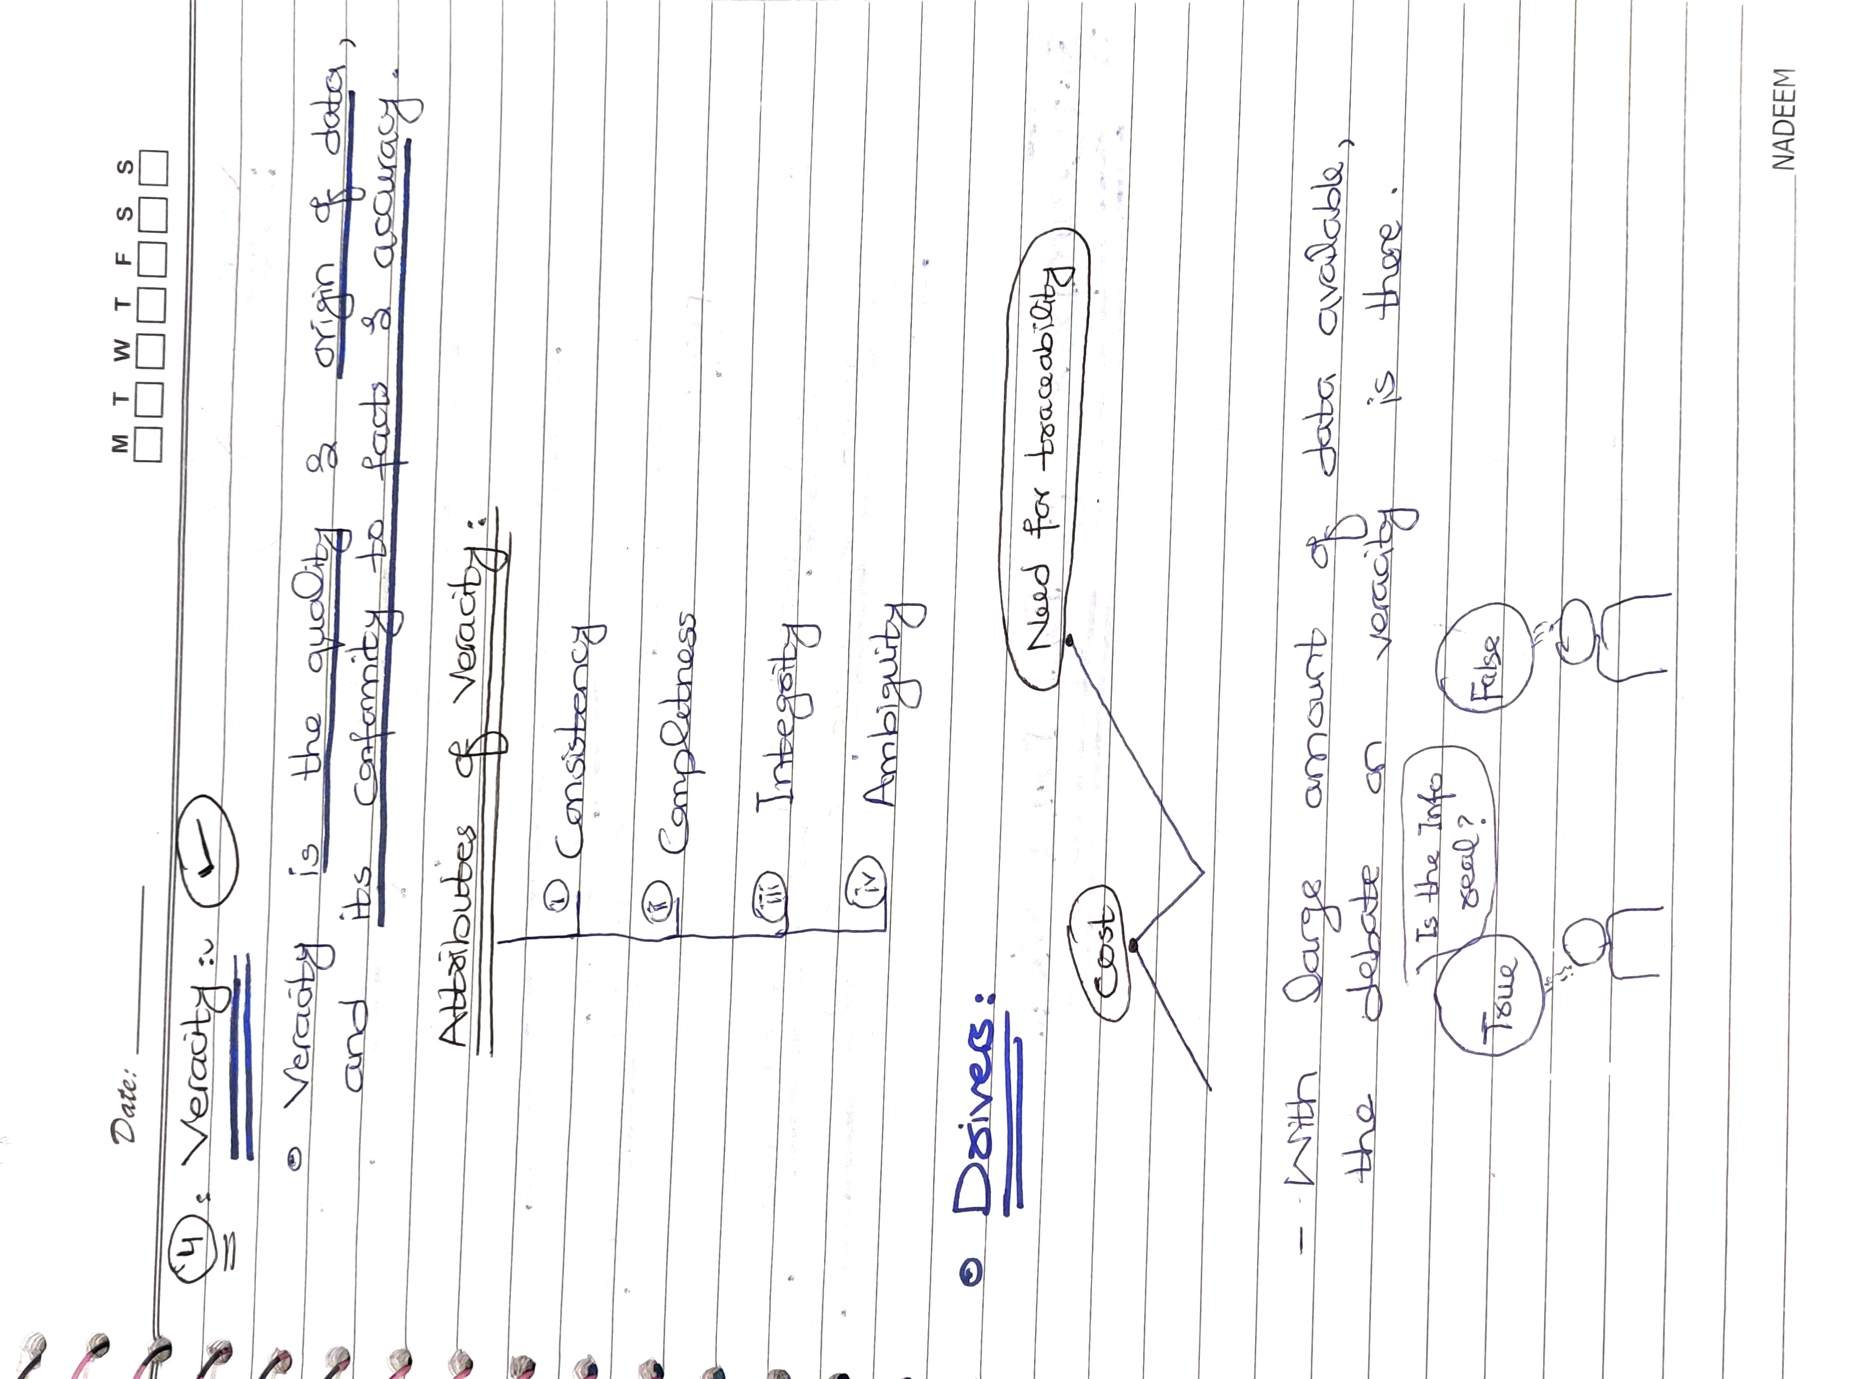 Date:
M T W T F S S
4: Veracity:
• Veracity is the quality & origin of data,
and its conformity to facts & accuracy.
Attributes of Veracity:
i Consistency
ii Completness
iii Integrity
iv Ambiguity
• Drivers:
Cost
Need for traceability
- With large amount of data available,
the debate on veracity is there.
Is the Info
real?
True
False
NADEEM